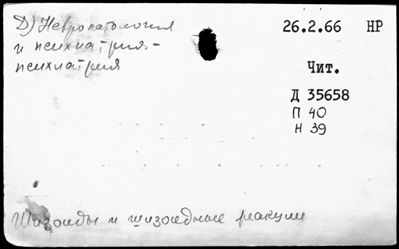 Д) Невропатология
и психиатрия -
психиатрия
26.2.66 НР
Чит.
Д 35658
П 40
Н 39
Шизоиды и шизоидные реакции